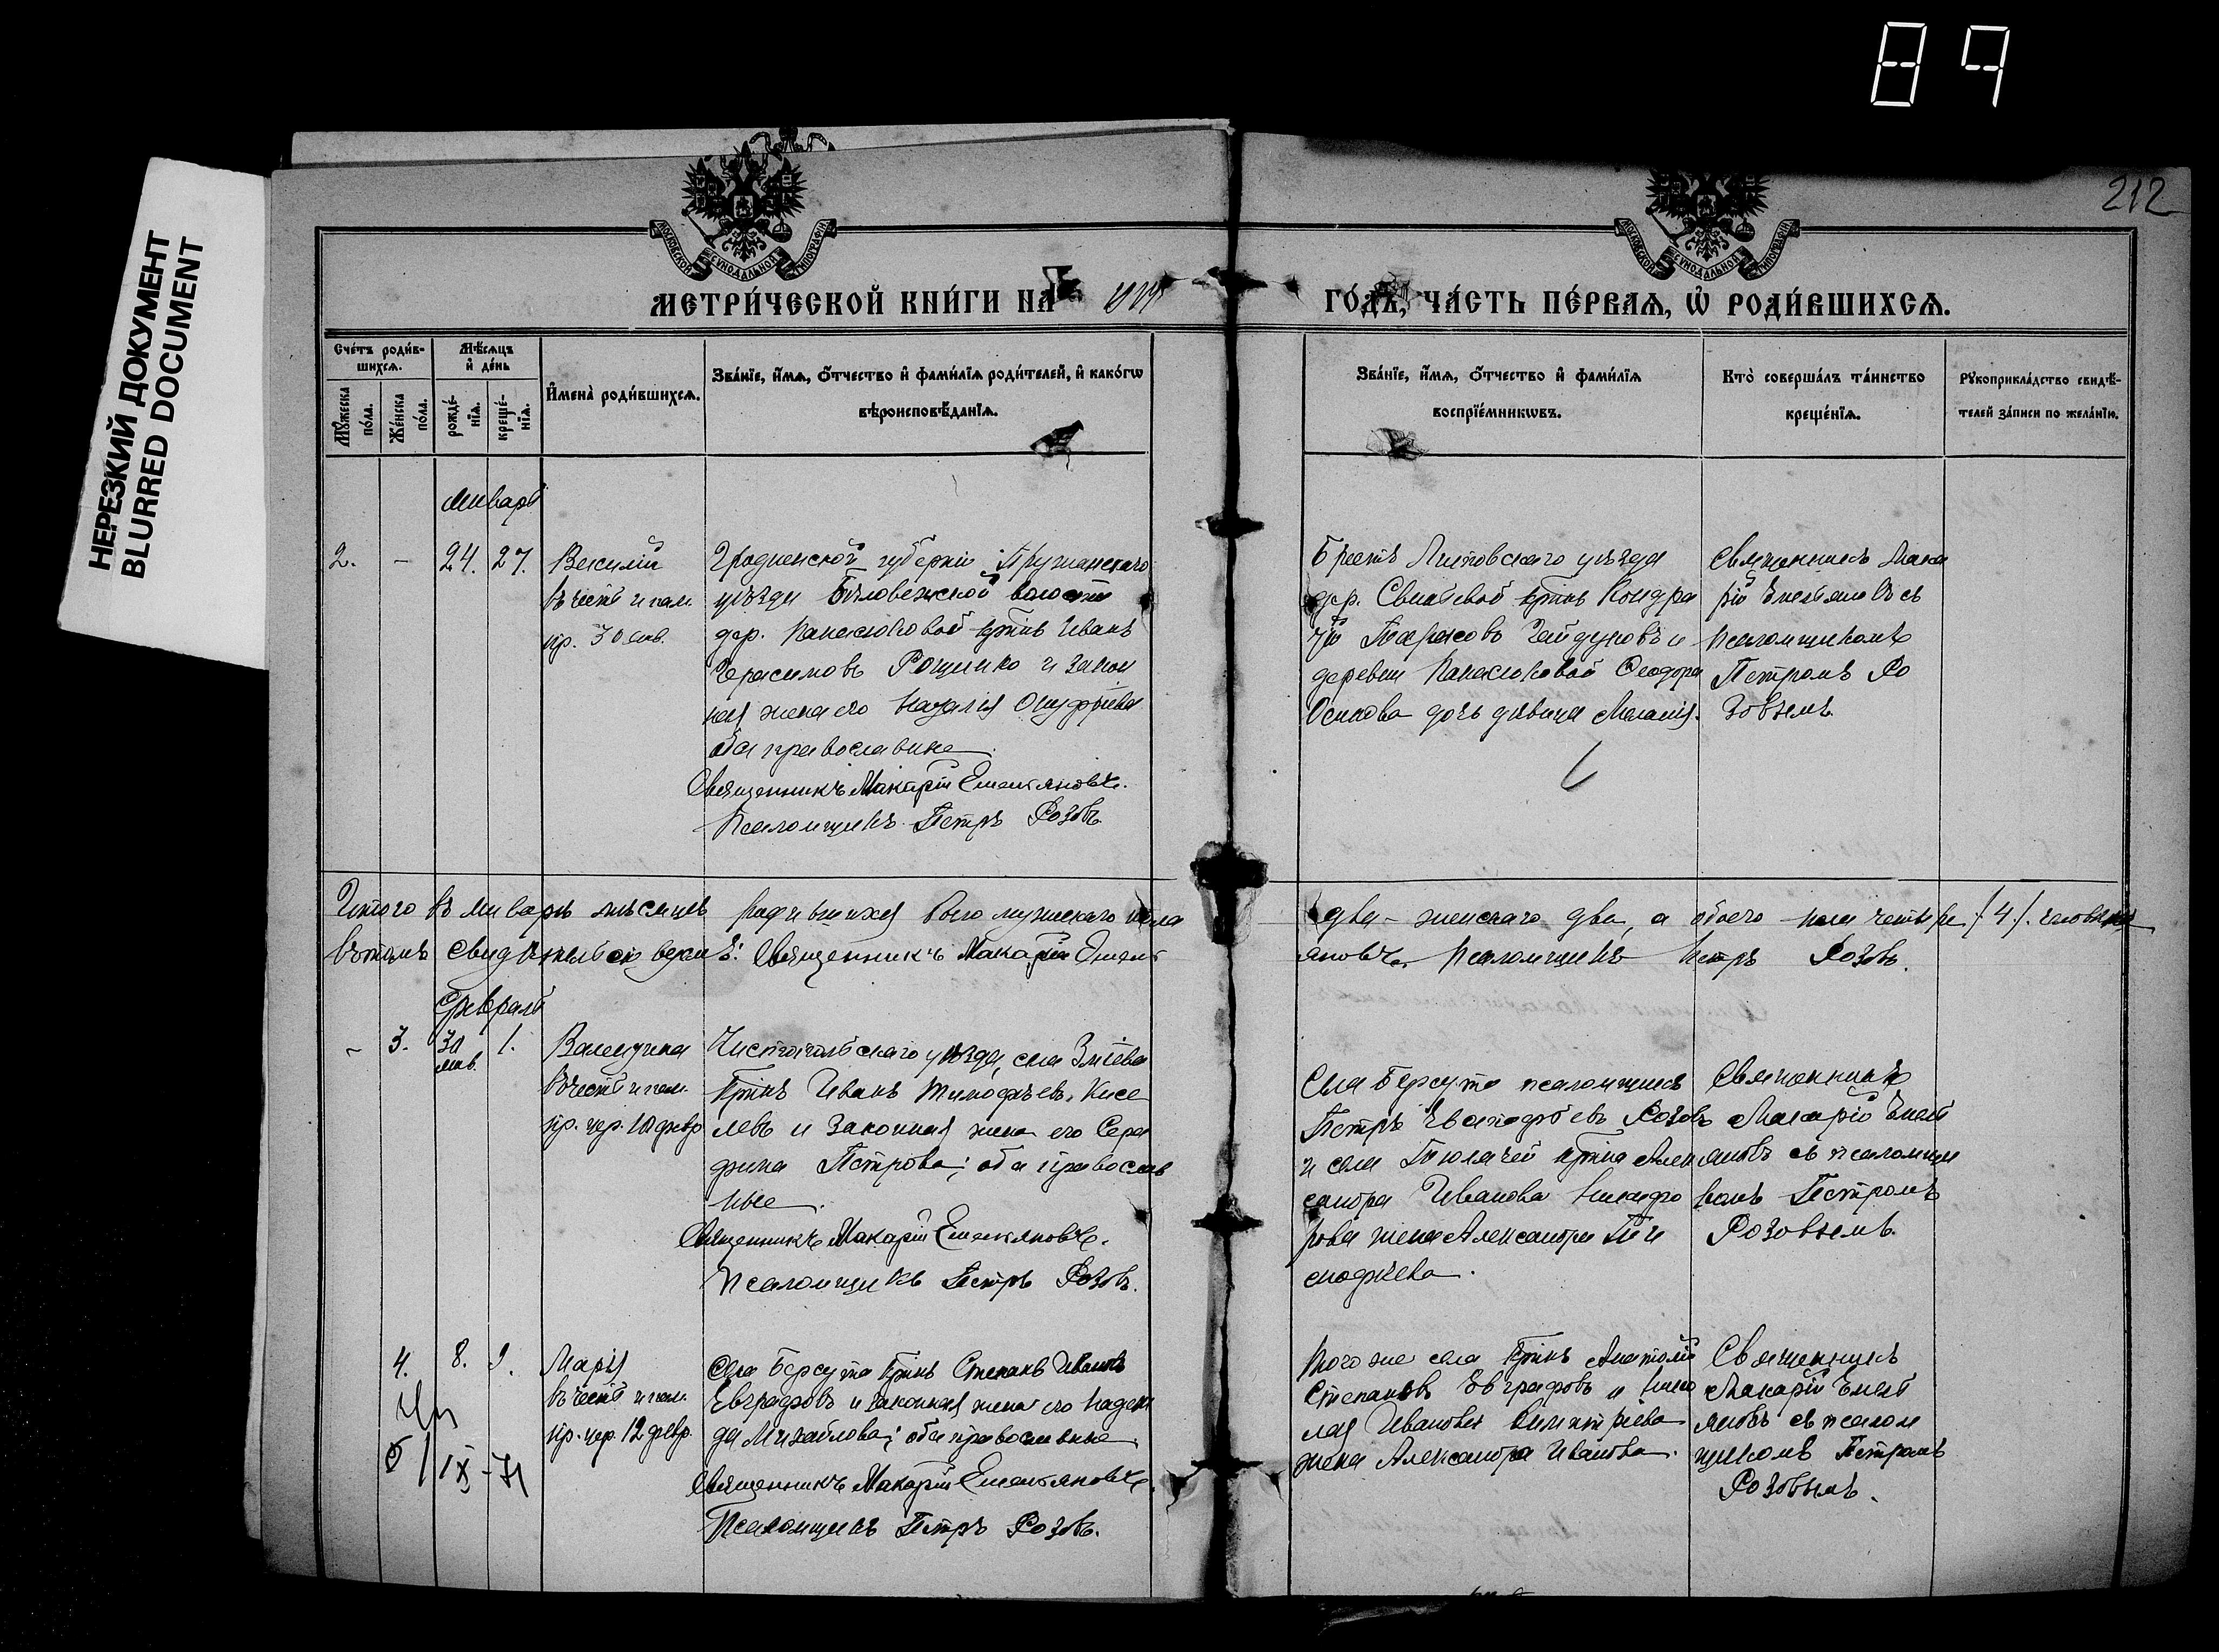 84
НЕРЕЗКИЙ ДОКУМЕНТ
BLURRED DOCUMENT
212
МОСКОВСКОЙ СѴНОДАЛЬНОЙ ТИПОГРАФІИ
МОСКОВСКОЙ СѴНОДАЛЬНОЙ ТИПОГРАФІИ
МЕТРИ́ЧЕСКОЙ КНИ́ГИ НА
ГО́ДЪ, ЧА́СТЬ ПЕ́РВАЯ, Ѡ РОДИ́ВШИХСЯ.
Сче́тъ роди́в-
шихся.
Мѣ́сяцъ
и де́нь
Мꙋжеска
по́ла.
Же́нска
по́ла.
рожде́-
нїя.
креще́-
нїя.
Имена̀ роди́вшихся.
Зва́нїе, и́мя, о́тчество и фами́лїя роди́телей, и како́гѡ
вѣроисповѣ́данїя.
Зва́нїе, и́мя, о́тчество и фами́лїя
воспрїе́мникѡвъ.
Кто̀ соверша́лъ та́инство
креще́нїя.
Рꙋкоприкла́дство свидѣ́-
телей за́писи по жела́нїю.
Январь
2. - 24. 27.
Василій
въ честь и пам.
пр. 30 янв.
Гродненской губерніи Пружанскаго
уѣзда Бѣловежской волости
дер. Панасюковой кр̃нъ Иванъ
Герасимовъ Рощенко и закон
ная жена его Наталія Онуфріева
оба православные.
Священникъ Макарій Емельяновъ.
Псаломщикъ Петръ Розовъ.
Брестъ Литовскаго уѣзда
дер. кр̃нъ Кондра
тій Тарасовъ Гайдуковъ и
деревни Панасюковой Ѳеодора
Осипова дочь дѣвица Меланія.
Священникъ Мака
рій Емельяновъ съ
псаломщикомъ
Петромъ Ро
зовымъ.
Итого въ Январѣ мѣсяцѣ родившихся было мужескаго пола два - женскаго два, а обоего пола четыре /4/. человѣка
въ томъ свидѣтельствуемъ: Священникъ Макарій Емельяновъ. Псаломщикъ Петръ Розовъ.
Февраль
- 3. 30 янв. 1.
Валентина
въ честь и пам.
пр. мр. 10 февр
Чистопольскаго уѣзда, села Зміева
кр̃нъ Иванъ Тимофѣевъ Кисе
левъ и законная жена его Сера
фима Петрова; оба православ
ные.
Священникъ Макарій Емельяновъ.
Псаломщикъ Петръ Розовъ.
Села Берсута псаломщикъ
Петръ Розовъ
и села Тюлячей кр̃на Алек
сандра Иванова Никифо
рова жена Александра Ти
моѳѣева.
Священникъ
Макарій Емель
яновъ съ псаломщи
комъ Петромъ
Розовымъ.
4. 8. 9.
Марія
въ честь и пам.
пр. мр. 12 февр.
Села Берсута кр̃нъ Степанъ Ивановъ
Евграфовъ и законная жена его Надеж
да Михайлова; оба православные.
Священникъ Макарій Емельяновъ.
Псаломщикъ Петръ Розовъ.
IX - 71
Того же села кр̃нъ Анатолій
Степановъ Евграфовъ и Нико
лая Иванова Димитріева
жена Александра Иванова.
Священникъ
Макарій Емель
яновъ съ псалом
щикомъ Петромъ
Розовымъ.